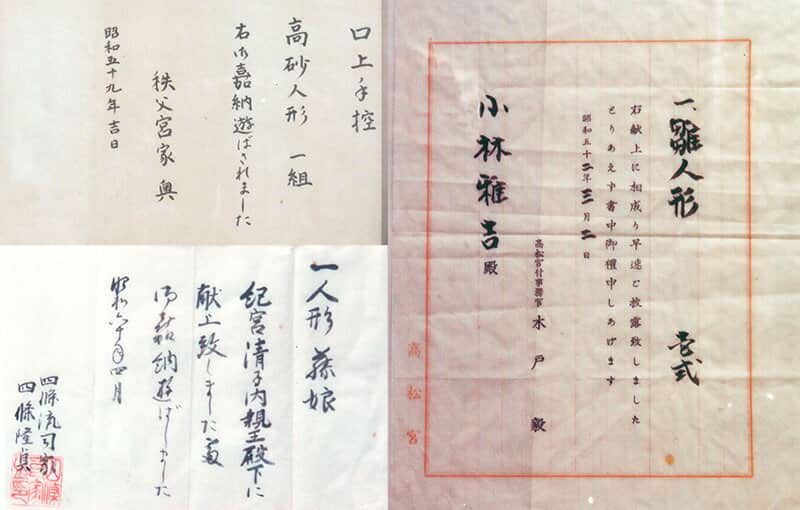 口上手控
高砂人形 一組
右御嘉納遊ばされました
秩父宮家 奥
昭和五十九年吉日
一人形 藤娘
紀宮清子内親王殿下に
献上致しました處
御嘉納遊ばしました
昭和六十年四月
四條流司家
四條隆貞
一、雛人形 壱式
右献上に相成り早速と披露致しました
とりあえず書中御禮申しあげます
昭和五十二年三月二日
高松宮付事務官 木戸 毅
小林雅吉殿
高松宮